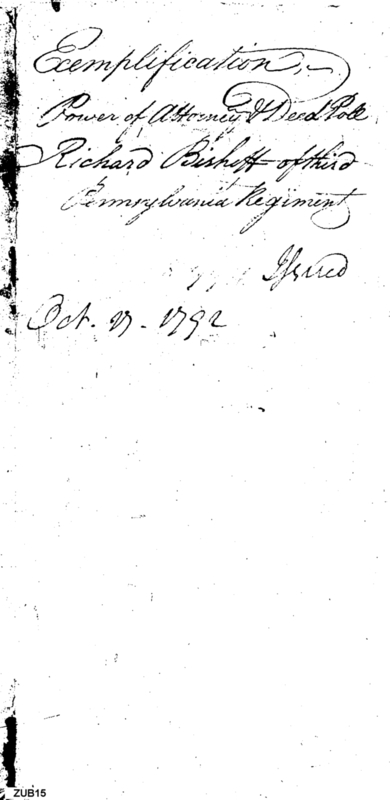 Exemplification,
Power of Attorney & Deed Poll
Richard of third
Pennsylvania Regiment
Issued
Oct. 17 - 1792
ZUB15